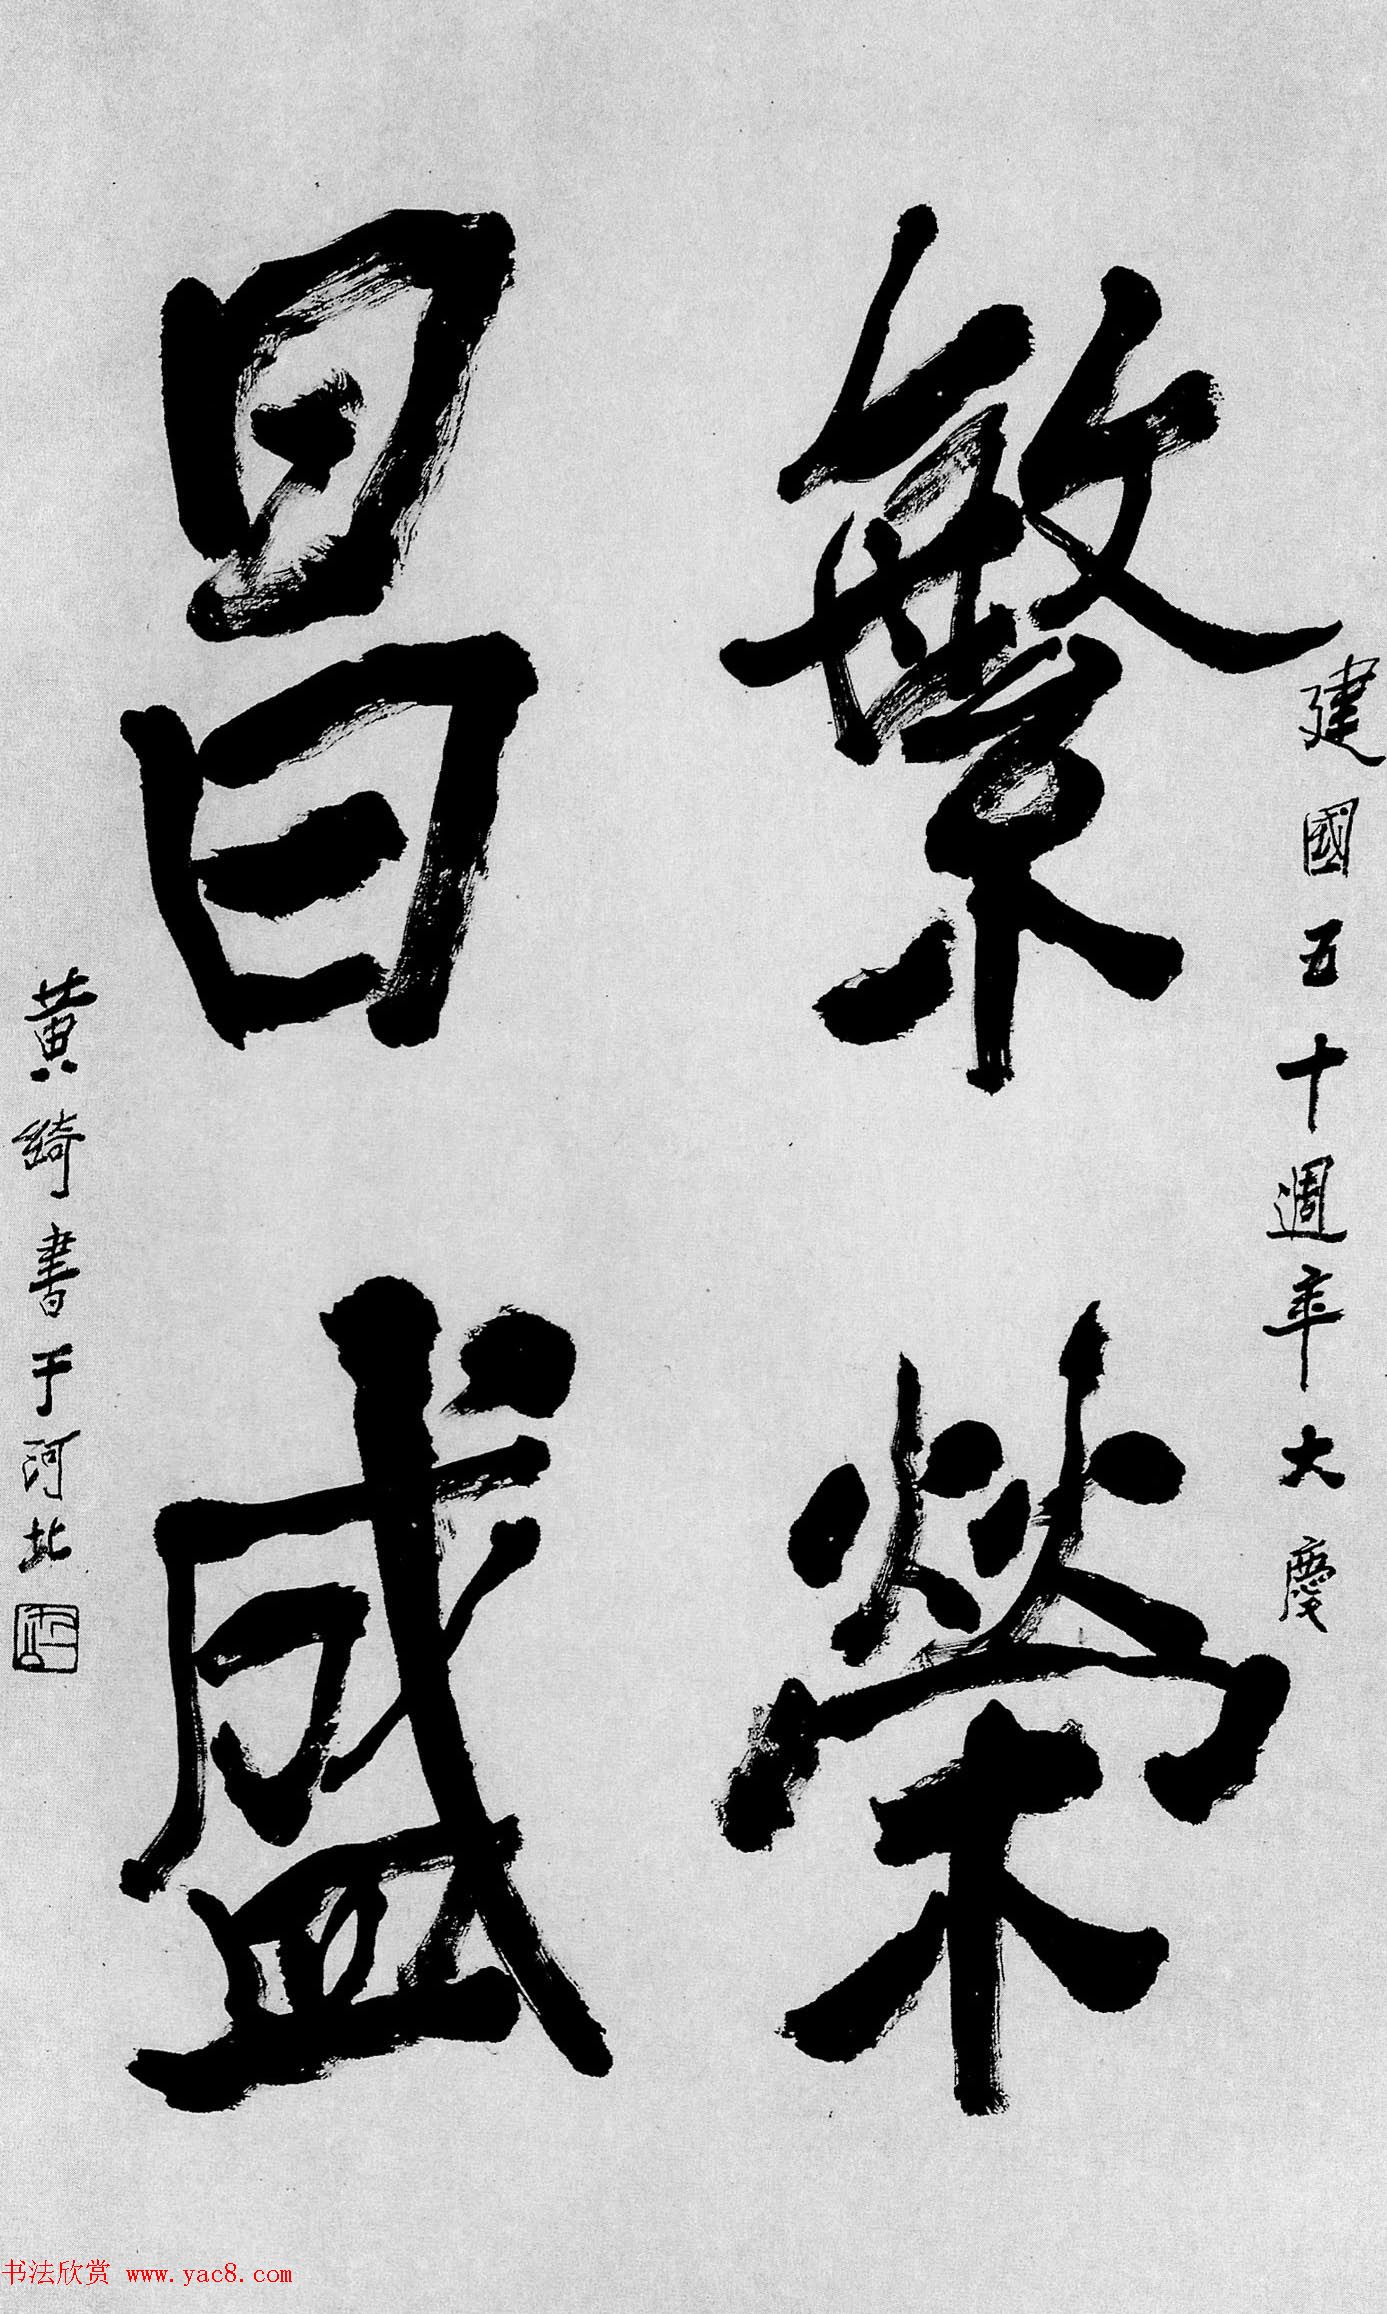 建國五十週年大慶
繁榮
昌盛
黄綺書于河北
书法欣赏 www.yac8.com